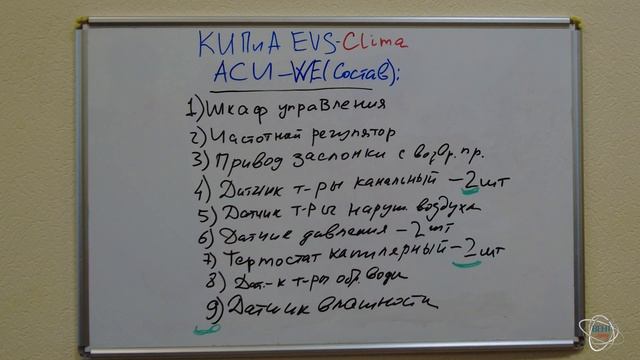 КИПиА EVS-Clima
АСУ-WE(состав):
1) Шкаф управления
2) Частотный регулятор
3) Привод заслонки с возвр. пр.
4) Датчик т-ры канальный - 2 шт
5) Датчик т-ры наруж. воздуха
6) Датчик давления - 2 шт
7) Термостат капилярный - 2 шт
8) Дат-к т-ры обр. воды
9) Датчик влажности
ВЕНТ